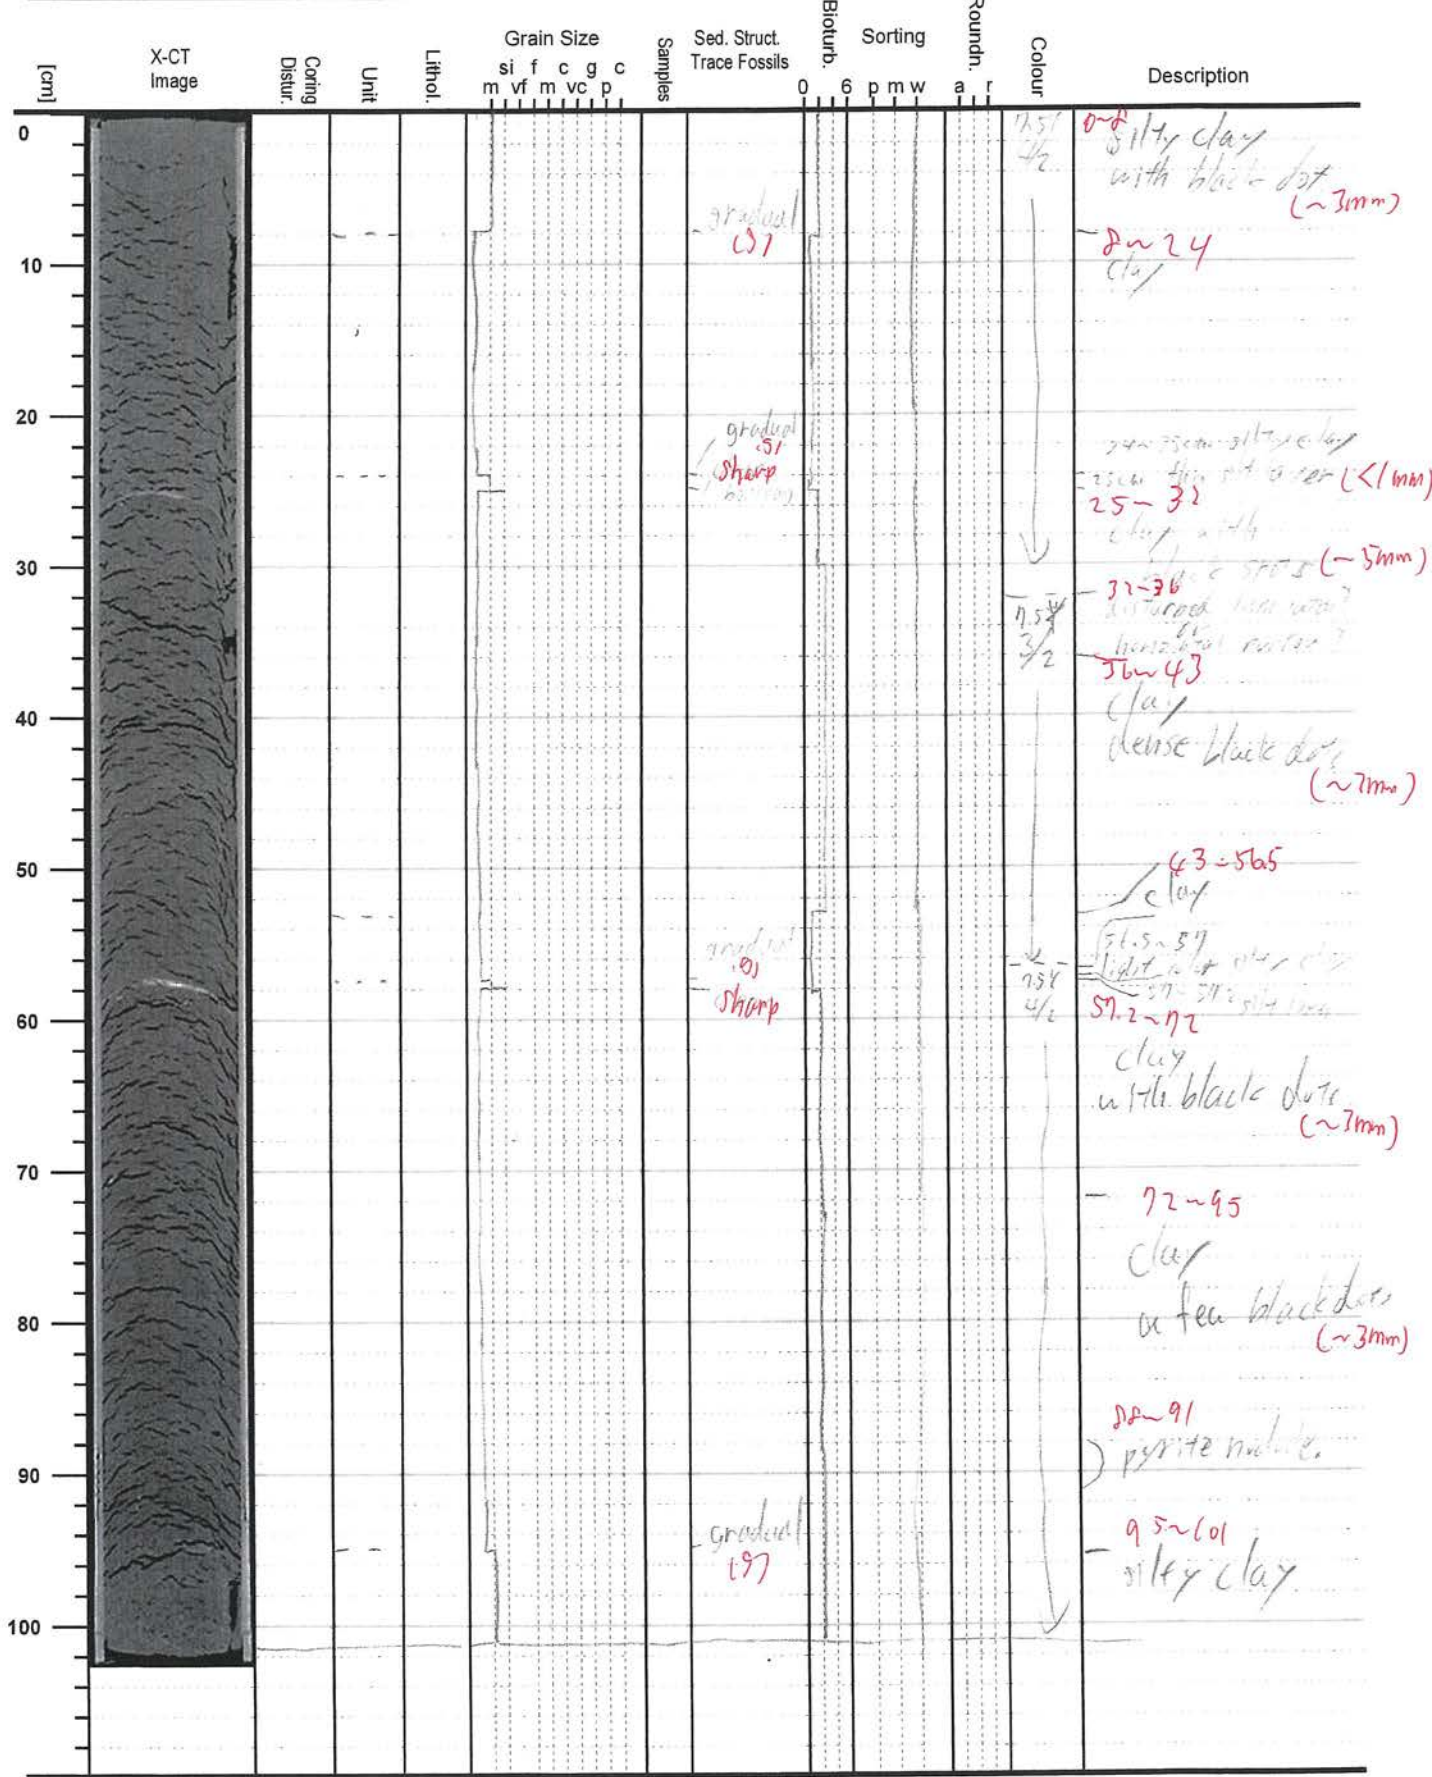 [cm]
X-CT
Image
Coring
Distur.
Unit
Lithol.
Grain Size
si f c g c
m vf m vc p
Samples
Sed. Struct.
Trace Fossils
Bioturb.
0 6
Sorting
p m w
Roundn.
a r
Colour
Description
0
10
20
30
40
50
60
70
80
90
100
gradual
gradual
sharp
gradual
sharp
gradual
4/2
3/2
4/2
0~8
silty clay
with black dot
(~3mm)
8~24
clay
24~25cm silty clay
25cm thin silt layer (<1mm)
25~32
clay with
(~5mm)
32~36
horizontal
36~43
clay
dense black dots
43~56.5
clay
56.5~57
light
57~57.2
57.2~72
clay
with black dots
(~3mm)
72~95
clay
a few black dots
(~3mm)
88~91
pyrite nodule.
95~101
silty clay.